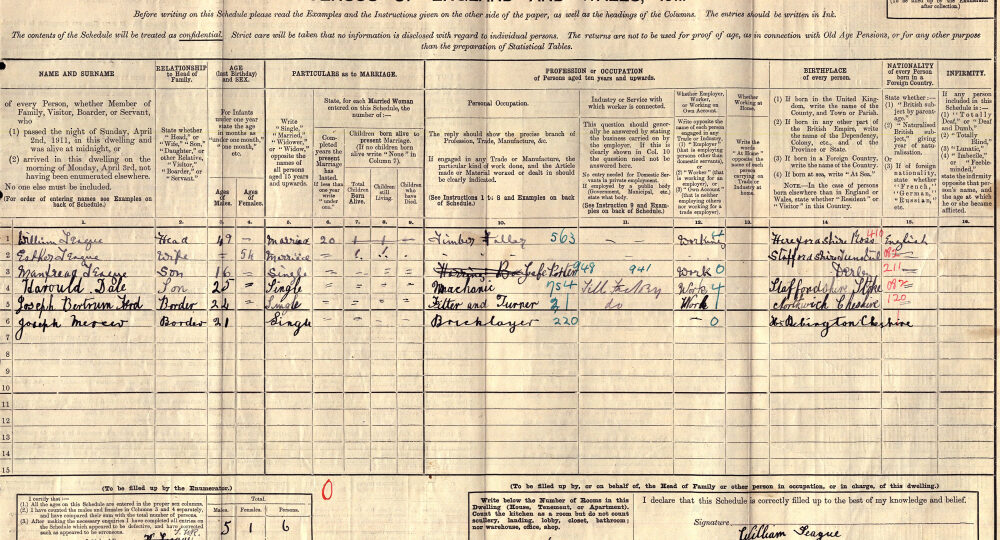 Before writing on this Schedule please read the Examples and the Instructions given on the other side of the paper, as well as the headings of the Columns. The entries should be written in Ink.
The contents of the Schedule will be treated as confidential. Strict care will be taken that no information is disclosed with regard to individual persons. The returns are not to be used for proof of age, as in connection with Old Age Pensions, or for any other purpose
than the preparation of Statistical Tables.
NAME AND SURNAME
RELATIONSHIP
to Head of
Family.
AGE
(last Birthday)
and SEX.
PARTICULARS as to MARRIAGE.
PROFESSION or OCCUPATION
of Persons aged ten years and upwards.
BIRTHPLACE
of every person.
NATIONALITY
of every Person
born in a
Foreign Country.
INFIRMITY.
of every Person, whether Member of
Family, Visitor, Boarder, or Servant,
who
(1) passed the night of Sunday, April
2nd, 1911, in this dwelling and
was alive at midnight, or
(2) arrived in this dwelling on the
morning of Monday, April 3rd, not
having been enumerated elsewhere.
No one else must be included.
(For order of entering names see Examples on
back of Schedule.)
State whether
"Head," or
"Wife," "Son,"
"Daughter," or
other Relative,
"Visitor,"
"Boarder," or
"Servant."
For Infants
under one year
state the age
in months as
"under one month,"
"one month,"
etc.
Ages
of
Males.
Ages
of
Females.
Write
"Single,"
"Married,"
"Widower,"
or "Widow,"
opposite the
names of
all persons
aged 15 years
and upwards.
State, for each Married Woman
entered on this Schedule, the
number of:—
Completed
years the
present
Marriage
has
lasted.
If less than
one year
write
"under
one."
Children born alive to
present Marriage.
(If no children born
alive write "None" in
Column 7).
Total
Children
Born
Alive.
Children
still
Living.
Children
who
have
Died.
Personal Occupation.
The reply should show the precise branch of
Profession, Trade, Manufacture, &c.
If engaged in any Trade or Manufacture, the
particular kind of work done, and the Article
made or Material worked or dealt in should
be clearly indicated.
(See Instructions 1 to 8 and Examples on back
of Schedule.)
Industry or Service with
which worker is connected.
This question should generally
be answered by stating
the business carried on
by the employer. If this is
clearly shown in Col. 10
the question need not be
answered here.
No entry needed for Domestic Servants
in private employment.
If employed by a public body
(Government, Municipal, etc.)
state what body.
(See Instruction 9 and Examples
on back of Schedule.)
Whether Employer,
Worker,
or Working on
Own Account.
Write opposite the name
of each person
engaged in any
Trade or
Industry,
(1) "Employer"
(that is employing
persons other than
domestic servants),
or
(2) "Worker" (that
is working for an
employer), or
(3) "Own Account"
(that is neither
employing others
nor working for a
trade employer).
Whether
Working at
Home.
Write the
words
"At Home"
opposite the
name of each
person
carrying on
Trade or
Industry at
home.
(1) If born in the United Kingdom,
write the name of the
County, and Town or Parish.
(2) If born in any other part of
the British Empire, write
the name of the Dependency,
Colony, etc., and of the
Province or State.
(3) If born in a Foreign Country,
write the name of the Country.
(4) If born at sea, write "At Sea."
NOTE.—In the case of persons
born elsewhere than in England or
Wales, state whether "Resident"
or "Visitor" in this Country.
State whether:—
(1) "British subject
by parentage."
(2) "Naturalised
British subject,"
giving
year of naturalisation.
Or
(3) If of foreign
nationality,
state whether
"French,"
"German,"
"Russian,"
etc.
If any person
included in this
Schedule is:—
(1) "Totally
Deaf," or "Deaf
and Dumb,"
(2) "Totally
Blind,"
(3) "Lunatic,"
(4) "Imbecile,"
or "Feeble-minded,"
state the infirmity
opposite that person's
name, and
the age at which
he or she became
afflicted.
1. 2. 3. 4. 5. 6. 7. 8. 9. 10. 11. 12. 13. 14. 15. 16.
1 William Teague Head 49 Married 20 Timber Faller 563 Working 4 Herefordshire Ross 410 English
2 Esther Teague Wife 54 Married Staffordshire Tunstall
3 Son 16 Single 948 941 Work 0 Derby 211
4 Harould Dale Son 25 Single Machanic 754 Work 4 Staffordshire Stoke
5 Joseph Bertrum Ford Border 24 Single Fitter and Turner 21 do Work 1 Northwich Cheshire 120
6 Joseph Mercer Border 21 Single Bricklayer 220 0 Hr Bebington Cheshire
7
8
9
10
11
12
13
14
15
(To be filled up by the Enumerator.)
0
(To be filled up by, or on behalf of, the Head of Family or other person in occupation, or in charge, of this dwelling.)
I certify that:—
(1.) All the ages on this Schedule are entered in the proper sex columns.
(2.) I have counted the males and females in Columns 3 and 4 separately,
and have compared their sum with the total number of persons.
(3.) After making the necessary enquiries I have completed all entries on
the Schedule which appeared to be defective, and have corrected
such as appeared to be erroneous.
Total.
Males. Females. Persons.
5 1 6
Write below the Number of Rooms in this
Dwelling (House, Tenement, or Apartment).
Count the kitchen as a room but do not count
scullery, landing, lobby, closet, bathroom;
nor warehouse, office, shop.
I declare that this Schedule is correctly filled up to the best of my knowledge and belief.
Signature William Teague